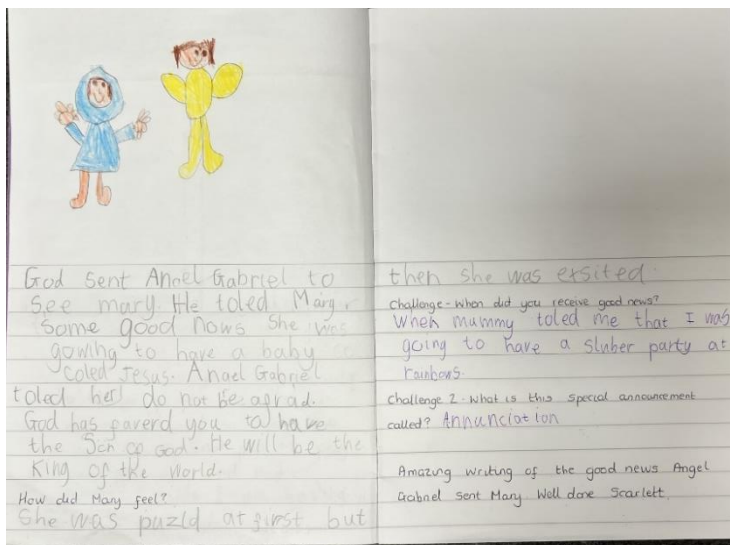 God sent Anael Gabriel to
see mary. He toled Mary
some good nows She was
gowing to have a baby
coled Jesus. Anael Gabriel
toled her do not be afrad.
God has faverd you to have
the Son of God. He will be the
King of the world.
How did Mary feel?
She was puzld at first but
then she was exsited.
Challenge - When did you receive good news?
When mummy toled me that I was
going to have a sluber party at
rainbows.
Challenge 2 - What is this special announcement
called? Annunciation
Amazing writing of the good news Angel
Gabriel sent Mary Well done Scarlett.